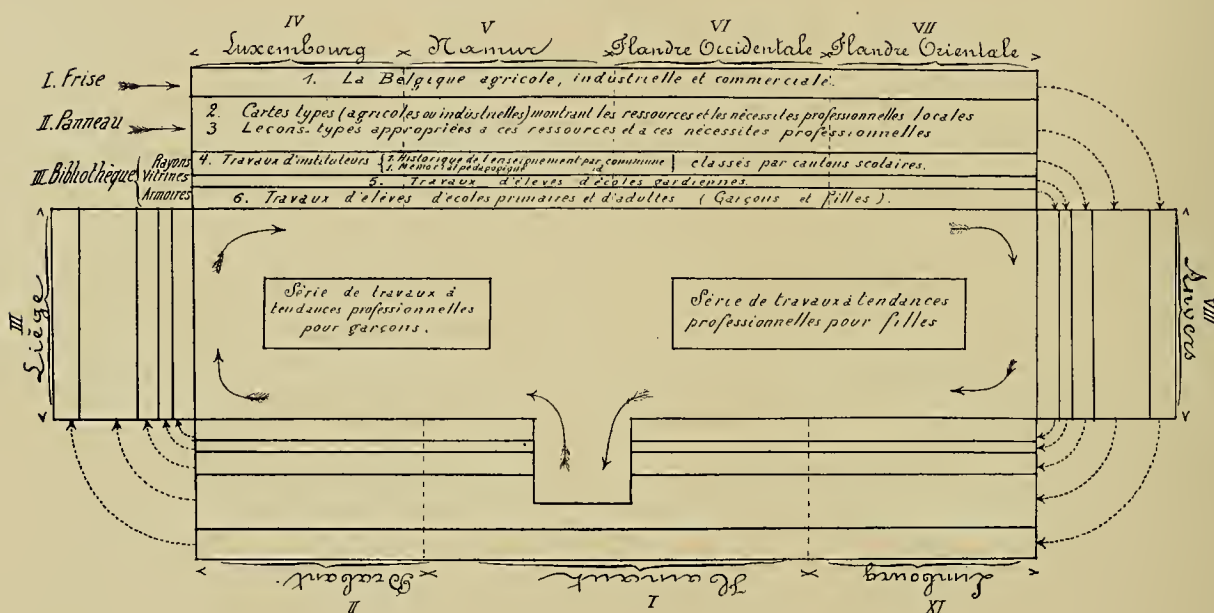 IV V VI VII
Luxembourg Namur Flandre Occidentale Flandre Orientale
I. Frise
1. La Belgique agricole, industrielle et commerciale.
II. Panneau
2. Cartes types (agricoles ou industrielles) montrant les ressources et les nécessités professionnelles locales
3 Leçons-types appropriées a ces ressources et a ces nécessites professionnelles
III. Bibliothèque
Rayons
Vitrines
Armoires
4. Travaux d'instituteurs
1. Historique de l'enseignement par commune
2. Mémorial pédagogique id
classés par cantons scolaires.
5. Travaux d'élèves d'écoles gardiennes.
6. Travaux d'élèves d'écoles primaires et d'adultes (Garçons et filles).
III
Liège
Série de travaux à
tendances professionnelles
pour garçons.
Série de travaux à tendances
professionnelles pour filles
VIII
Anvers
Brabant. Hainaut Limbourg
II I XI